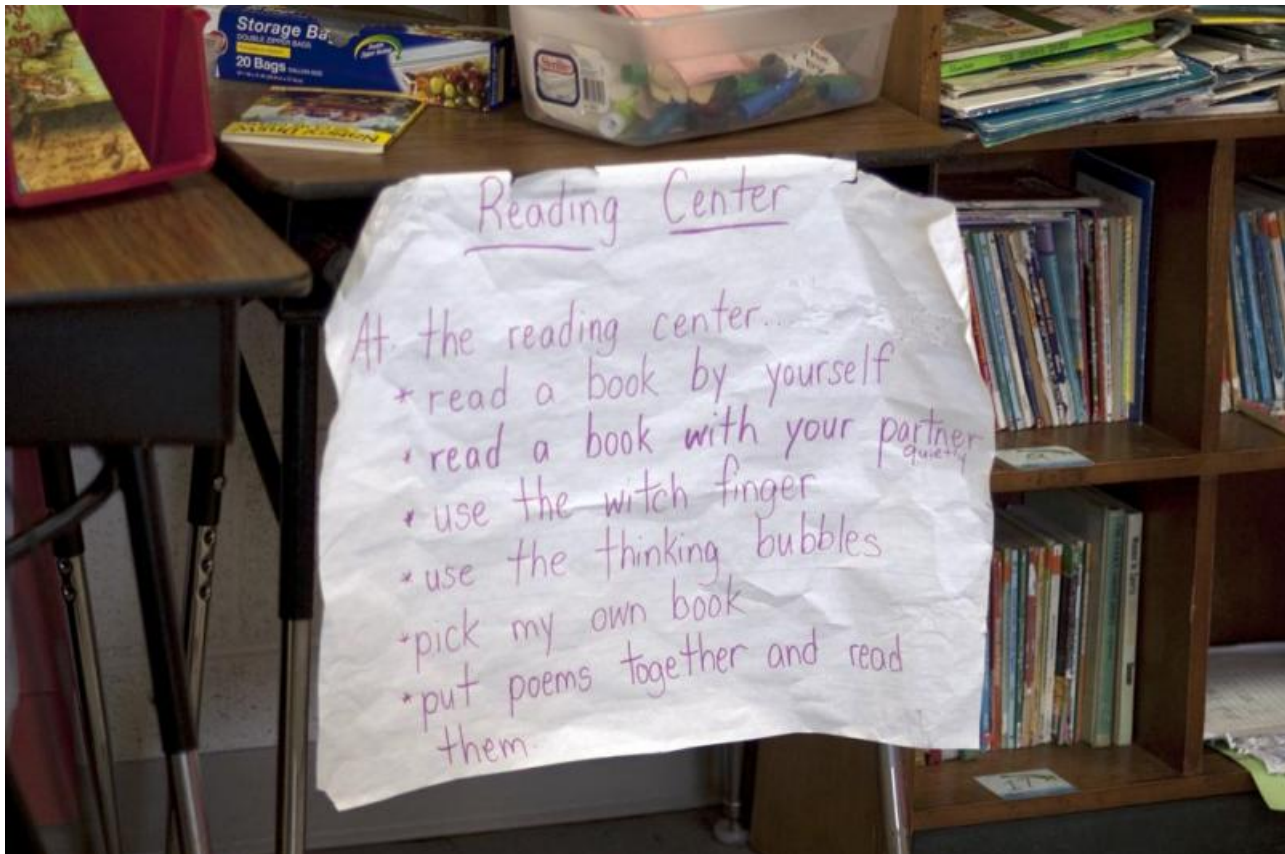 Storage Ba
DOUBLE ZIPPER BAGS
20 Bags GALLON SIZE
Reading Center
At the reading center...
* read a book by yourself
* read a book with your partner
quietly
* use the witch finger
* use the thinking bubbles
* pick my own book
* put poems together and read
them.
17